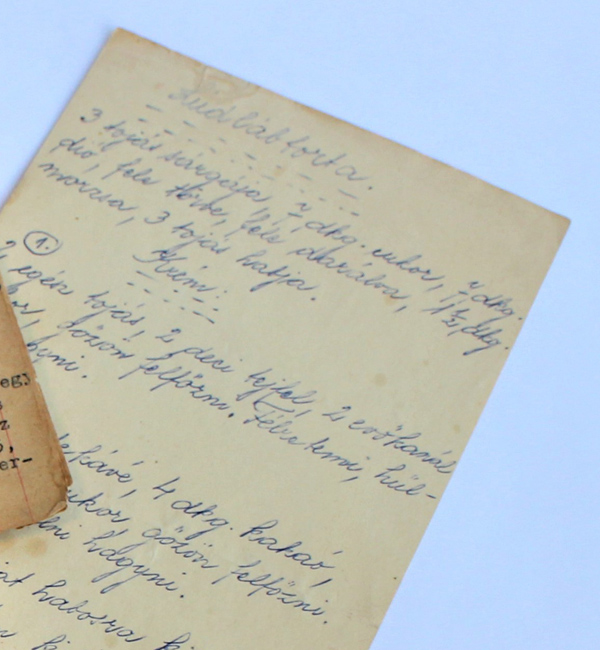 Lúdláb torta.
3 tojás sárgája, 7 dkg. cukor, 7 dkg.
dió, fele törve, fele darálva, 1½ dkg.
morzsa, 3 tojás habja.
Krém:
1.
2 egész tojás, 2 deci tejfel, 2 evőkanál
gőzön felfőzni. Félretenni, hül-
kávé, 4 dkg. kakaó,
cukor, gőzön felfőzni.
hagyni.
habosra
egy
z
er-